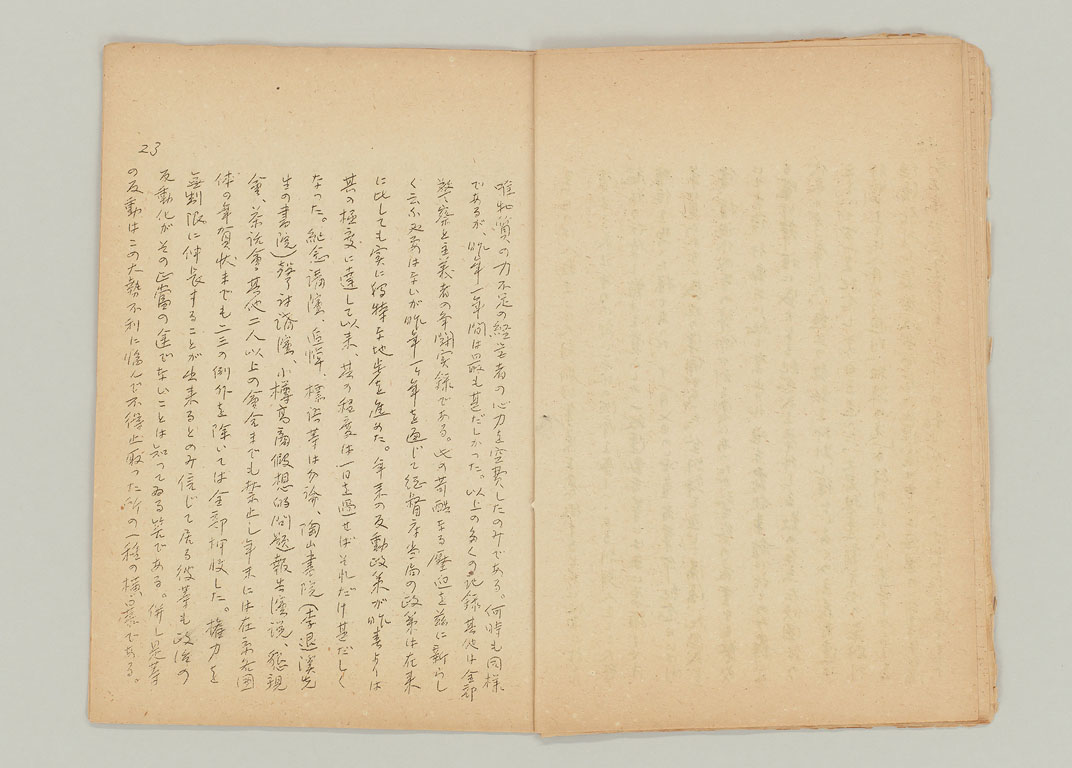 唯物質の力不足の経営者の心力を空費したのみである。何時も同様
であるが、昨年一年間は最も甚だしかった。以上の多くの記録其他は全部
警察と主義者の争闘実録である。此の苛酷なる壓迫を茲に新らし
く云ふ必要はないが昨年一ヶ年を通じて総督府当局の政策は在来
に比しても実に独特な地歩を進めた。年来の反動政策が昨春よりは
其の極度に達して以来、其の程度は一日を過せばそれだけ甚だしく
なった。紀念講演、追悼、標語等は勿論、陶山書院(李退溪先
生の書院)聲討講演、小樽高商假想的問題報告演説、懇親
會、茶話會、其他二人以上の會合までも禁止し年末には在京各團
体の年賀状までも二三の例外を除いては全部押收した。権力を
無制限に伸長することが出来るとのみ信じて居る彼等も政治の
反動化がその正當の途でないことは知ってゐる筈である。併し是等
の反動はこの大勢不利に悩んで不得止取った所の一種の横暴である。
23